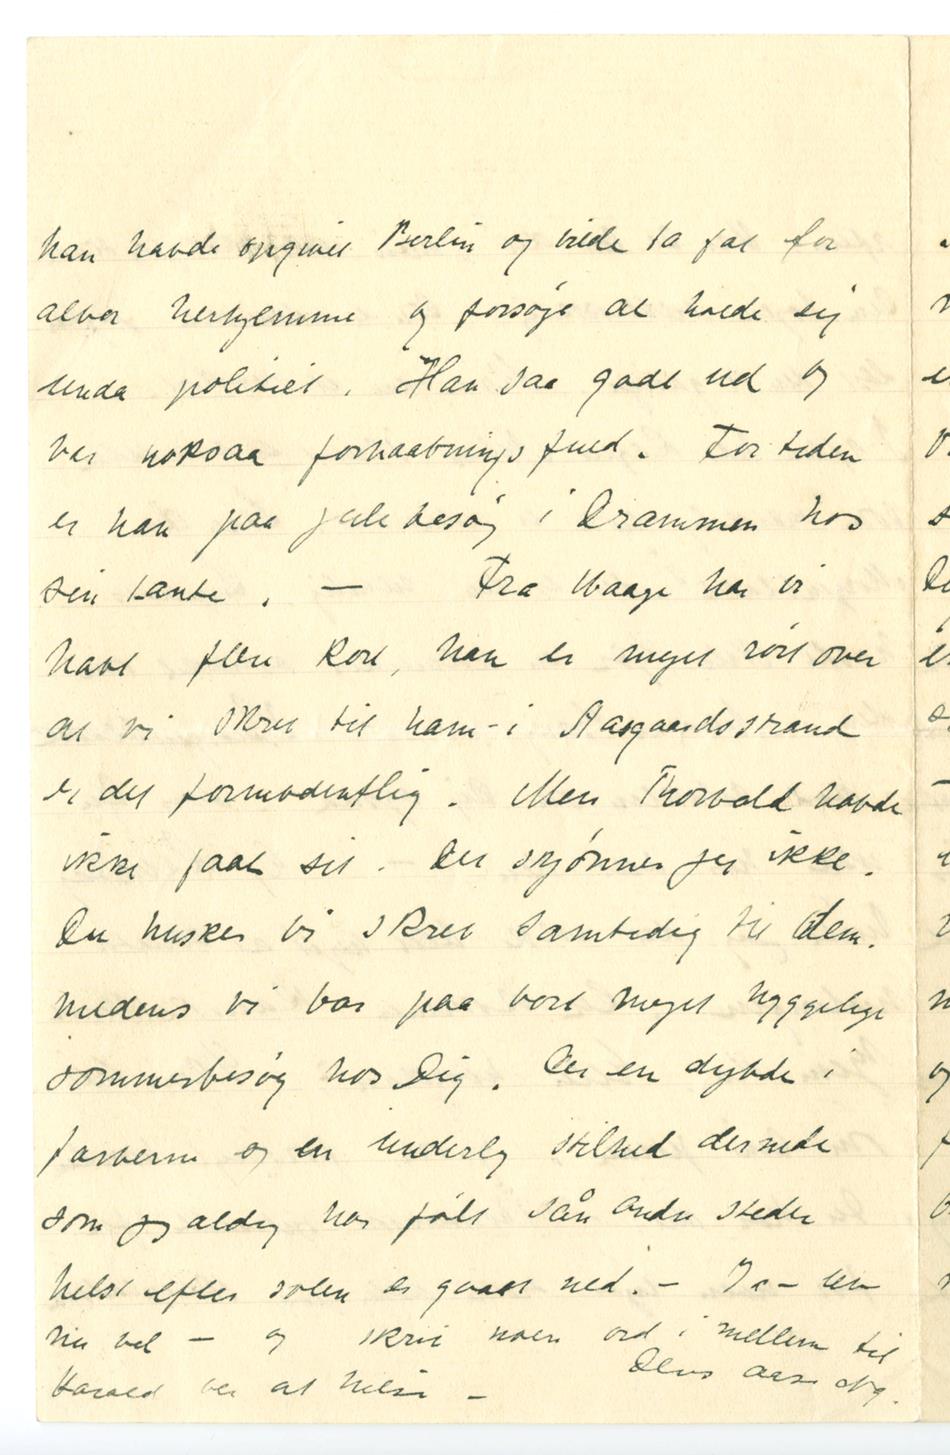 han havde opgivet Berlin og vilde ta fat for
alvor herhjemme og forsøge at holde sig
unda politiet. Han saa godt ud og
var noksaa forhaabningsfuld. For tiden
er han paa julebesøg i Drammen hos
sin tante. — Fra Waage har vi
havt flere kort, han er meget rørt over
at vi skrev til ham - i Aasgaardsstrand
er det formodentlig. Men Thorvald havde
ikke faaet sit. Det skjønner jeg ikke.
Du husker vi skrev samtidig til dem.
medens vi var paa vort meget hyggelige
sommerbesøg hos Dig. Der er en dybde i
farverne og en underlig stilhed dernede
som jeg aldrig har følt sån andre steder
helst efter solen er gaaet ned. — Ja - lev
nu vel — og skriv noen ord i mellem til
Harald ber at hilse — Deres Aase